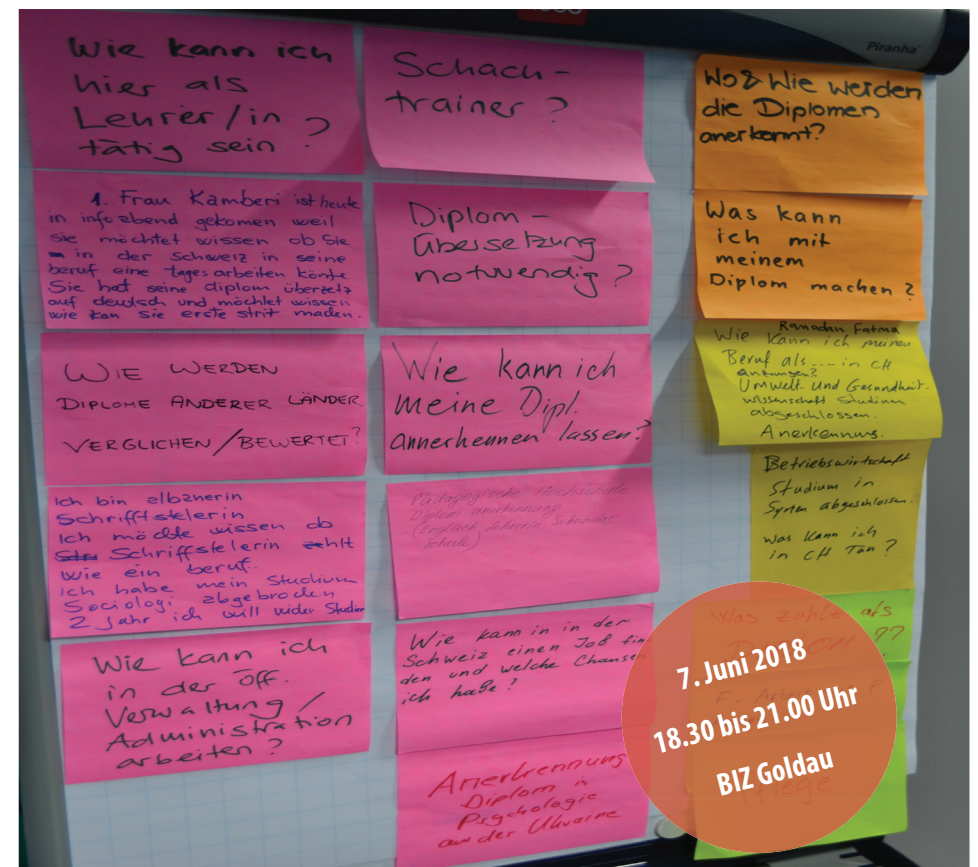 Piranha
Wie kann ich
hier als
Lehrer/in
tätig sein ?
1. Frau Kamberi ist heute
in infoabend gekomen weil
sie möchtet wissen ob Sie
in der schweiz in seine
beruf eine tages arbeiten könte
Sie hat seine diplom überzetz
auf deutsch und möchtet wissen
wie kan sie erste strit machen.
WIE WERDEN
DIPLOME ANDERER LÄNDER
VERGLICHEN/BEWERTET?
Ich bin albanerin
Schrifftstelerin
Ich möchte wissen ob
Schriffstelerin zehlt
wie ein beruf.
ich habe mein Studium
Sociologi abgebrochen
2 jahr ich will wider Studier
Wie kann ich
in der öff.
Verwaltung /
Administration
arbeiten ?
Schach-
trainer ?
Diplom-
übersetzung
notwendig ?
Wie kann ich
meine Dipl.
annerkennen lassen?
Pädagogische Hochschule
Diplom anerkennung
(Englisch Lehrerin Sekundar
Schule)
Wie kann in in der
Schweiz einen Job fin-
den und welche Chansen
ich habe ?
Anerkennung
Diplom in
Psychologie
aus der Ukraine
Wo & Wie werden
die Diplomen
anerkannt?
Was kann
ich mit
meinem
Diplom machen ?
Ramadan Fatma
Wie kann ich meinen
Beruf als .... in CH
Umwelt und Gesundheit-
wissenschaft Studium
abgeschlossen.
Anerkennung.
Betriebswirtschaft
Studium in
Syrien abgeschlossen.
was kann ich
in CH Tun ?
Was zählt als
??
Pflege
7. Juni 2018
18.30 bis 21.00 Uhr
BIZ Goldau